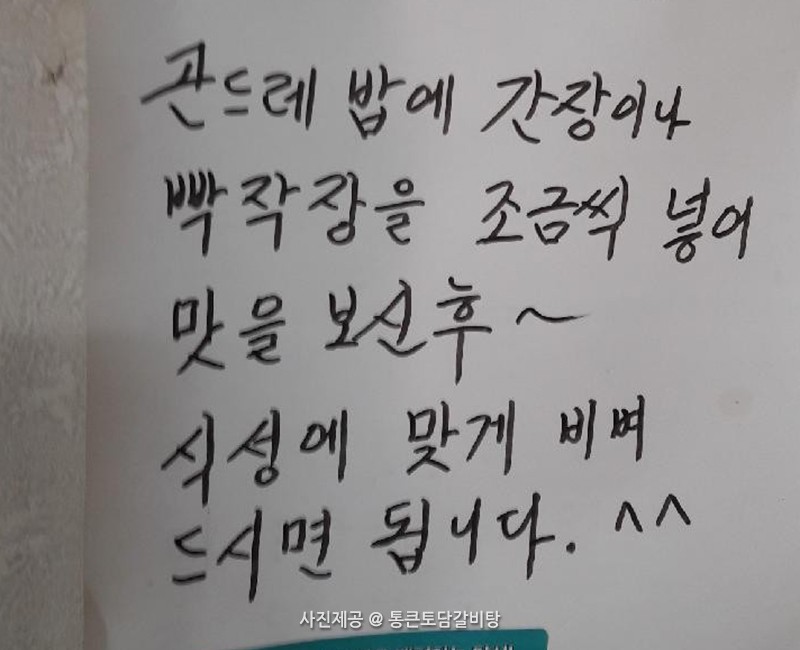 곤드레 밥에 간장이나
빡작장을 조금씩 넣어
맛을 보신후~
식성에 맞게 비벼
드시면 됩니다. ^^
사진제공 @ 통큰토담갈비탕